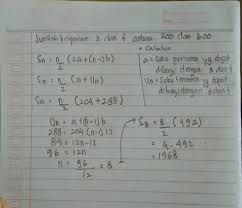 Jumlah kelipatan 3 dan 4 antara 200 dan 300
Sn = n/2 (2a + (n-1)b
Sn = n/2 (a + Un)
Sn = n/2 (204 + 288)
Un = a + (n-1)b
288 = 204 + (n-1)12
84 = 12n - 12
96 = 12n
n = 96/12 = 8
* Catatan
a = suku pertama yg dapat
dibagi dengan 3 dan 4
Un = suku terakhir yg dapat
dibagi dengan 3 dan 4
S8 = 8/2 (492)
= 4 . 492
= 1968